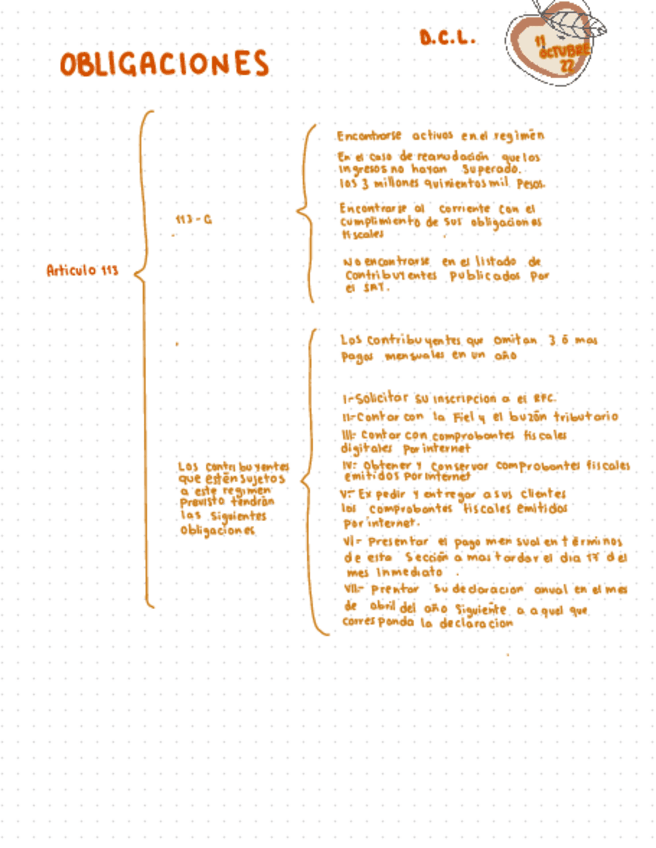 D.C.L.
11
OCTUBRE
22
OBLIGACIONES
Articulo 113
113-G
Encontrarse activos en el regimén
En el caso de reanudación que los
ingresos no hayan Superado.
los 3 millones quinientos mil Pesos.
Encontrarse al corriente con el
cumplimiento de sus obligaciones
fiscales
No encontrarse en el listado de
Contribuyentes publicados por
el SAT.
Los contribuyentes
que estén sujetos
a este regimen
Previsto tendrán
las siguientes
Obligaciones
Los contribuyentes que omitan 3 ó mas
pagos mensuales en un año
I-Solicitar su inscripcion a el RFC.
II-Contar con la Fiel y el buzón tributario
III- Contar con comprobantes fiscales
digitales Por internet
IV- obtener y conservar comprobantes fiscales
emitidos por internet
V- Expedir y entregar a sus clientes
los comprobantes fiscales emitidos
por internet.
VI- Presentar el pago mensual en términos
de esta Sección a mas tardar el dia 17 del
mes Inmediato.
VII- Prentar Su declaracion anual en el mes
de abril del año Siguiente a aquel que
corresponda la declaracion